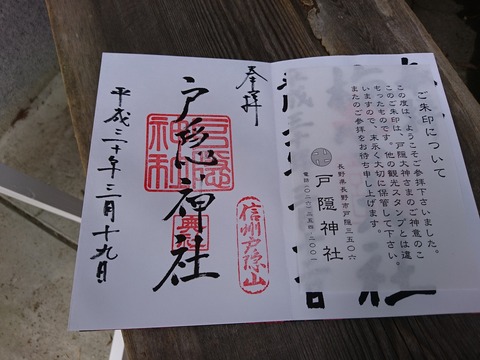 ご朱印について
この度は、ようこそご参拝下さいました。
このご朱印は、戸隠大神さまのご神意のこ
もったものです。他の観光スタンプとは違
いますので、末永く大切に保管して下さい。
またのご参拝をお待ち申し上げます。
長野県長野市戸隠三五〇六
戸隠神社
奉拝
信州戸隠山
戸隠神社
平成三十年三月十九日